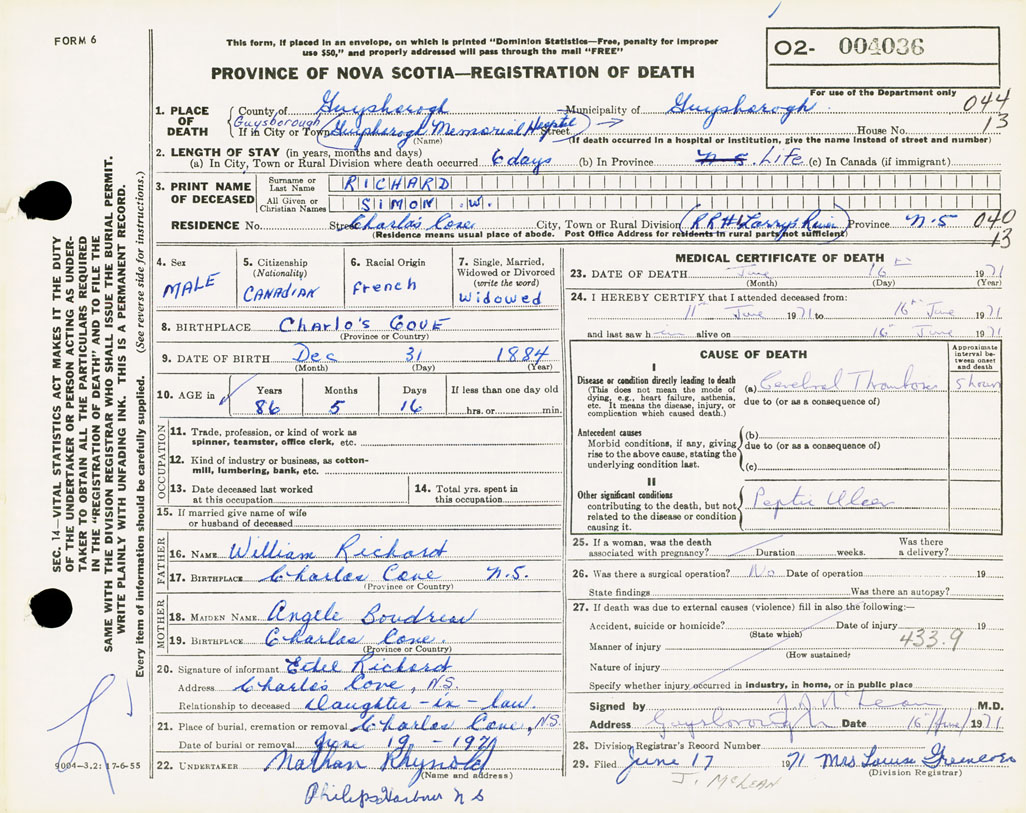 FORM 6
This form, if placed in an envelope, on which is printed "Dominion Statistics—Free, penalty for improper
use $50," and properly addressed will pass through the mail "FREE"
PROVINCE OF NOVA SCOTIA—REGISTRATION OF DEATH
O2- 004036
For use of the Department only
044
13
1. PLACE OF DEATH
County of Guysborogh Municipality of Guysborogh
Guysborough
If in City or Town Guysborogh Memorial Hospital Street House No.
(Name) (If death occurred in a hospital or institution, give the name instead of street and number)
2. LENGTH OF STAY (in years, months and days)
(a) In City, Town or Rural Division where death occurred 6 days (b) In Province N-S. Life (c) In Canada (if immigrant)
3. PRINT NAME OF DECEASED
Surname or Last Name RICHARD
All Given or Christian Names SIMON .W.
RESIDENCE No. Street Charlo's Cove City, Town or Rural Division RR#1 Larrys River Province N-S
040
13
(Residence means usual place of abode. Post Office Address for residents in rural parts not sufficient)
4. Sex
MALE
5. Citizenship
(Nationality)
CANADIAN
6. Racial Origin
French
7. Single, Married,
Widowed or Divorced
(write the word)
Widowed
8. BIRTHPLACE Charlo's Cove
(Province or Country)
9. DATE OF BIRTH Dec 31 1884
(Month) (Day) (Year)
10. AGE in
Years Months Days If less than one day old
86 5 16 hrs. or min.
OCCUPATION
11. Trade, profession or kind of work as
spinner, teamster, office clerk, etc.
12. Kind of industry or business, as cotton-
mill, lumbering, bank, etc.
13. Date deceased last worked
at this occupation
14. Total yrs. spent in
this occupation
15. If married give name of wife
or husband of deceased
FATHER
16. NAME William Richard
17. BIRTHPLACE Charlos Cove N.S.
(Province or Country)
MOTHER
18. MAIDEN NAME Angele Boudreau
19. BIRTHPLACE Charlos Cove.
(Province or Country)
20. Signature of informant Ethel Richard
Address Charlos Cove, N.S.
Relationship to deceased Daughter-in-law.
21. Place of burial, cremation or removal Charlos Cove, N.S.
Date of burial or removal June 19 - 1971
22. UNDERTAKER Nathan Rhynold
(Name and address)
Philips Harbour N S
MEDICAL CERTIFICATE OF DEATH
23. DATE OF DEATH June 16th 1971
(Month) (Day) (Year)
24. I HEREBY CERTIFY that I attended deceased from:
11th June 1971 to 16th June 1971
and last saw him alive on 16th June 1971
CAUSE OF DEATH
Approximate
interval be-
tween onset
and death
I
Disease or condition directly leading to death
(This does not mean the mode of
dying, e.g., heart failure, asthenia,
etc. It means the disease, injury, or
complication which caused death.)
(a) Cerebral Thrombosis 5 hours
due to (or as a consequence of)
Antecedent causes
Morbid conditions, if any, giving
rise to the above cause, stating the
underlying condition last.
(b)
due to (or as a consequence of)
(c)
II
Other significant conditions
contributing to the death, but not
related to the disease or condition
causing it.
Peptic Ulcer
25. If a woman, was the death
associated with pregnancy? Duration weeks. Was there
a delivery?
26. Was there a surgical operation? No Date of operation 19
State findings Was there an autopsy?
27. If death was due to external causes (violence) fill in also the following:—
Accident, suicide or homicide? Date of injury 19
(State which)
433.9
Manner of injury
(How sustained)
Nature of injury
Specify whether injury occurred in industry, in home, or in public place
Signed by J.A. McLean M.D.
Address Guysborough Date 16th/June/1971
28. Division Registrar's Record Number
29. Filed June 17 1971 Mrs Louise Greencorn
(Division Registrar)
J. McLEAN
SEC. 14—VITAL STATISTICS ACT MAKES IT THE DUTY
OF THE UNDERTAKER OR PERSON ACTING AS UNDER-
TAKER TO OBTAIN ALL THE PARTICULARS REQUIRED
IN THE "REGISTRATION OF DEATH" AND TO FILE THE
SAME WITH THE DIVISION REGISTRAR WHO SHALL ISSUE THE BURIAL PERMIT.
WRITE PLAINLY WITH UNFADING INK. THIS IS A PERMANENT RECORD.
Every item of information should be carefully supplied. (See reverse side for instructions.)
9004-3.2: 17-6-55